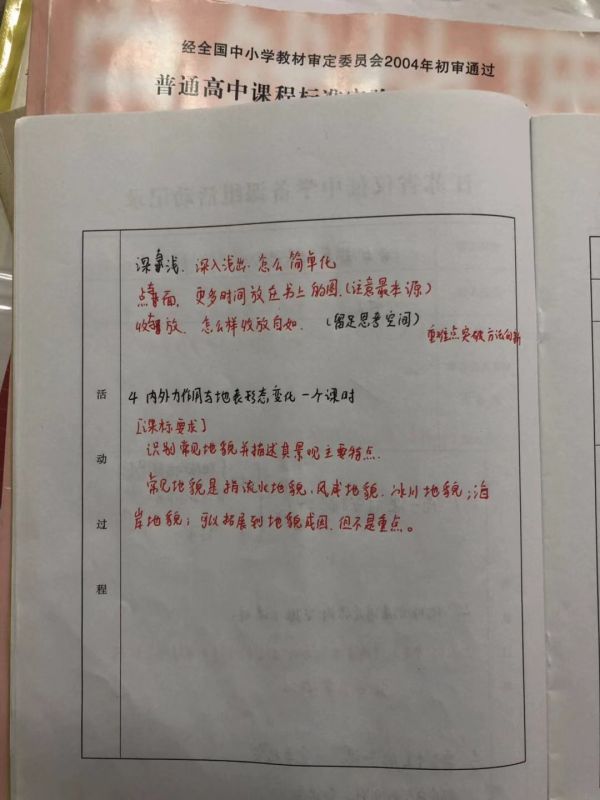 经全国中小学教材审定委员会2004年初审通过
普通高中课程标准实验
深与浅. 深入浅出 怎么简单化
点与面, 更多时间放在书上的图.(注意最本源)
收与放. 怎么样收放自如. (留足思考空间)
重难点突破方法创新
活动过程
4 内外力作用与地表形态变化 一个课时
[课标要求]
识别常见地貌并描述其景观主要特点.
常见地貌是指流水地貌、风成地貌、冰川地貌;海
岸地貌;可以拓展到地貌成因,但不是重点。